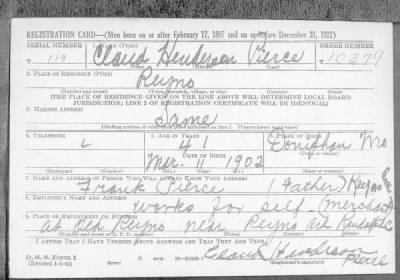 REGISTRATION CARD—(Men born on or after February 17, 1897 and on or before December 31, 1921)
SERIAL NUMBER 1. NAME (Print) ORDER NUMBER
T 119 Claud Henderson Pierce T 10379
2. PLACE OF RESIDENCE (Print)
Reyno
[THE PLACE OF RESIDENCE GIVEN ON THE LINE ABOVE WILL DETERMINE LOCAL BOARD
JURISDICTION; LINE 2 OF REGISTRATION CERTIFICATE WILL BE IDENTICAL]
3. MAILING ADDRESS
Same
[Mailing address if other than place indicated on line 2. If same insert word same]
4. TELEPHONE 5. AGE IN YEARS 6. PLACE OF BIRTH
41 Mo
DATE OF BIRTH
Mar. 11 1902
7. NAME AND ADDRESS OF PERSON WHO WILL ALWAYS KNOW YOUR ADDRESS
Frank Pierce (Father) Reyno
8. EMPLOYER'S NAME AND ADDRESS
works for self (merchant)
9. PLACE OF EMPLOYMENT OR BUSINESS
at Old Reyno near Reyno Ark
I AFFIRM THAT I HAVE VERIFIED ABOVE ANSWERS AND THAT THEY ARE TRUE.
D. S. S. Form 1 Claud Henderson
Pierce